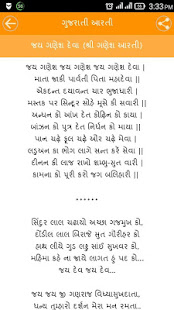 3:33 PM
ગુજરાતી આરતી
જય ગણેશ દેવા (શ્રી ગણેશ આરતી)
જય ગણેશ જય ગણેશ જય ગણેશ દેવા |
માતા જાકી પાર્વતી પિતા મહાદેવા |
એકદન્ત દયાવન્ત ચાર ભુજાધારી |
મસ્તક પર સિન્દૂર સોહે મૂસે કી સવારી |
અન્ધન કો આંખ દેત કોઢિન કો કાયા |
બાંઝન કો પુત્ર દેત નિર્ધન કો માયા ||
પાન ચઢે ફૂલ ચઢે ઔર ચઢે મેવા |
લડ્ડુઅન કા ભોગ લાગે સન્ત કરે સેવા |
દીનન કી લાજ રાખો શમ્ભુ-સુત વારી |
કામના કો પૂરી કરો જગ બલિહારી ||
......
સિંદુર લાલ ચઢાયો અચ્છા ગજમુખ કો.
દોંદીલ લાલ બિરાજે સૂત ગૌરીહર કો
હાથ લીયે ગુડ લડ્ડુ સાંઈ સુખવર કો.
મહિમા કહે ના જાયે લાગત હું પદ કો...
જય દેવ જય દેવ...
જય જય જી ગણરાજ વિધ્યાસુખદાતા,
ધન્ય તુમ્હારો દર્શન મેરા મન રમતા..